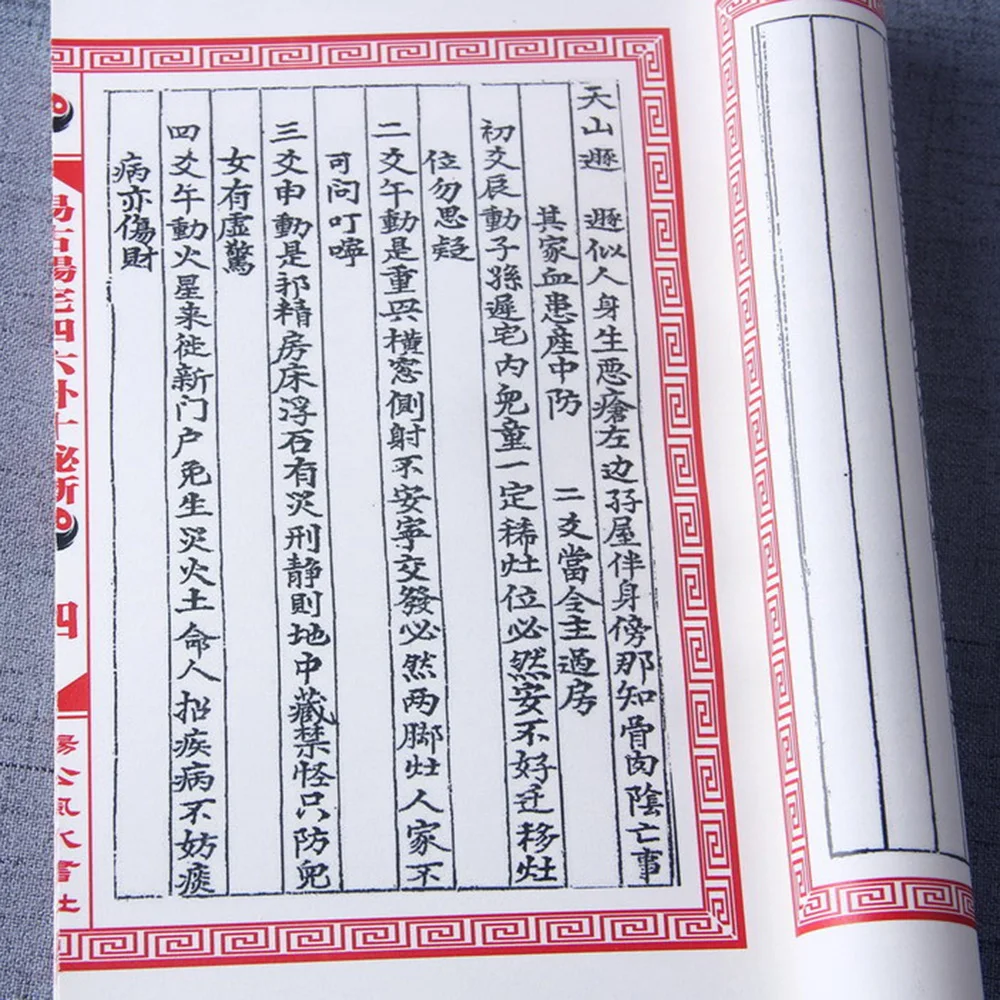 天山遯 遯似人身生惡瘡左边孖屋伴身傍那知骨肉陰亡事
其家血患産中防 二爻當全主過房
初爻辰動子孫遲宅内児童一定稀灶位必然安不好迁移灶
位勿思疑
二爻午動是重畀横窓側射不安寧交發必然两脚灶人家不
可问叮嚀
三爻申動是邪精房床浮石有災刑静則地中藏禁怪只防児
女有虚驚
四爻午動火星来徙新门户免生災火土命人招疾病不妨痰
病亦傷財
四
楊公風水書社